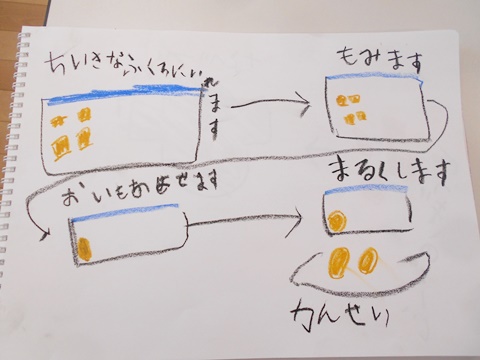 ちいさなふくろにいれます
もみます
おいもあわせます
まるくします
かんせい